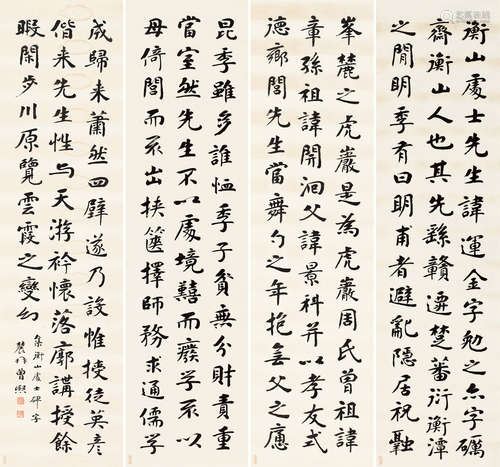 衡山處士先生諱運金字勉之亦字礪
齋衡山人也其先繇贛遷楚蕃衍衡潭
之閒明季有曰明甫者避亂隱居祝融
峯麓之虎巖是為虎巖周氏曾祖諱
章孫祖諱開洄父諱景科并以孝友式
德鄉閭先生當舞勺之年抱無父之慮
昆季雖多誰恤季子貧無分財責重
當室然先生不以處境囏而癈學不以
母倚閭而不出挾篋擇師務求通儒學
成歸来蕭然四壁遂乃設帷授徒英彥
偕来先生性与天游衿懷落廓講授餘
暇閑步川原覽雲霞之變幻
集衡山處士碑字
農髯曾熙